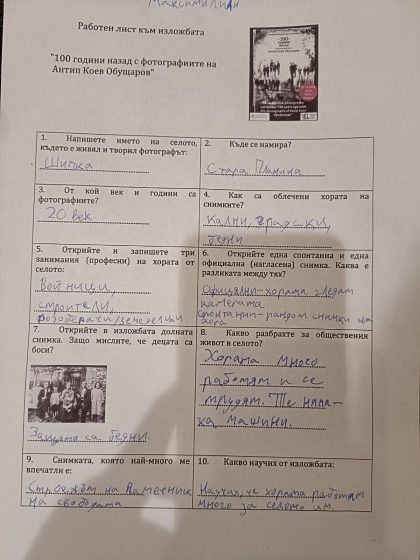 Максимилиан
Работен лист към изложбата
"100 години назад с фотографиите на
Антип Коев Обущаров"
1. Напишете името на селото,
където е живял и творил фотографът:
Шипка
2. Къде се намира?
Стара Планина
3. От кой век и години са
фотографиите?
20 век
4. Как са облечени хората на
снимките?
кални, градски,
бедни
5. Открийте и запишете три
занимания (професии) на хората от
селото:
войници,
строители,
розоберачи/земеделци
6. Открийте една спонтанна и една
официална (нагласена) снимка. Каква е
разликата между тях?
Официялни-хората гледат
камерата
спонтанни-рандом снимки на
хора
7. Открийте в изложбата долната
снимка. Защо мислите, че децата са
боси?
Защото са бедни.
8. Какво разбрахте за обществения
живот в селото?
Хората много
работят и се
трудят. Те няма-
ха машини.
9. Снимката, която най-много ме
впечатли е:
Строежът на Паметник
на свободата
10. Какво научих от изложбата:
Научих, че хората работят
много за селото им.